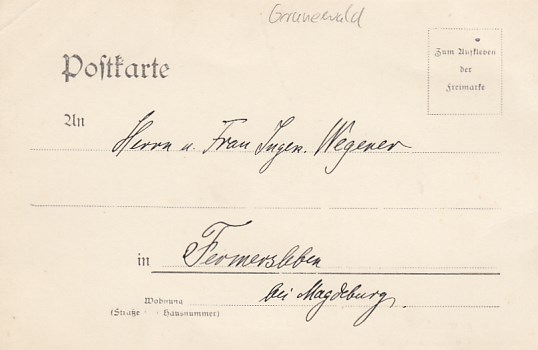 Grunewald
Zum Aufkleben
der
Freimarke
Postkarte
An
Herrn u. Frau Ingen. Wegener
in Fermersleben
bei Magdeburg
Wohnung
(Straße Hausnummer)